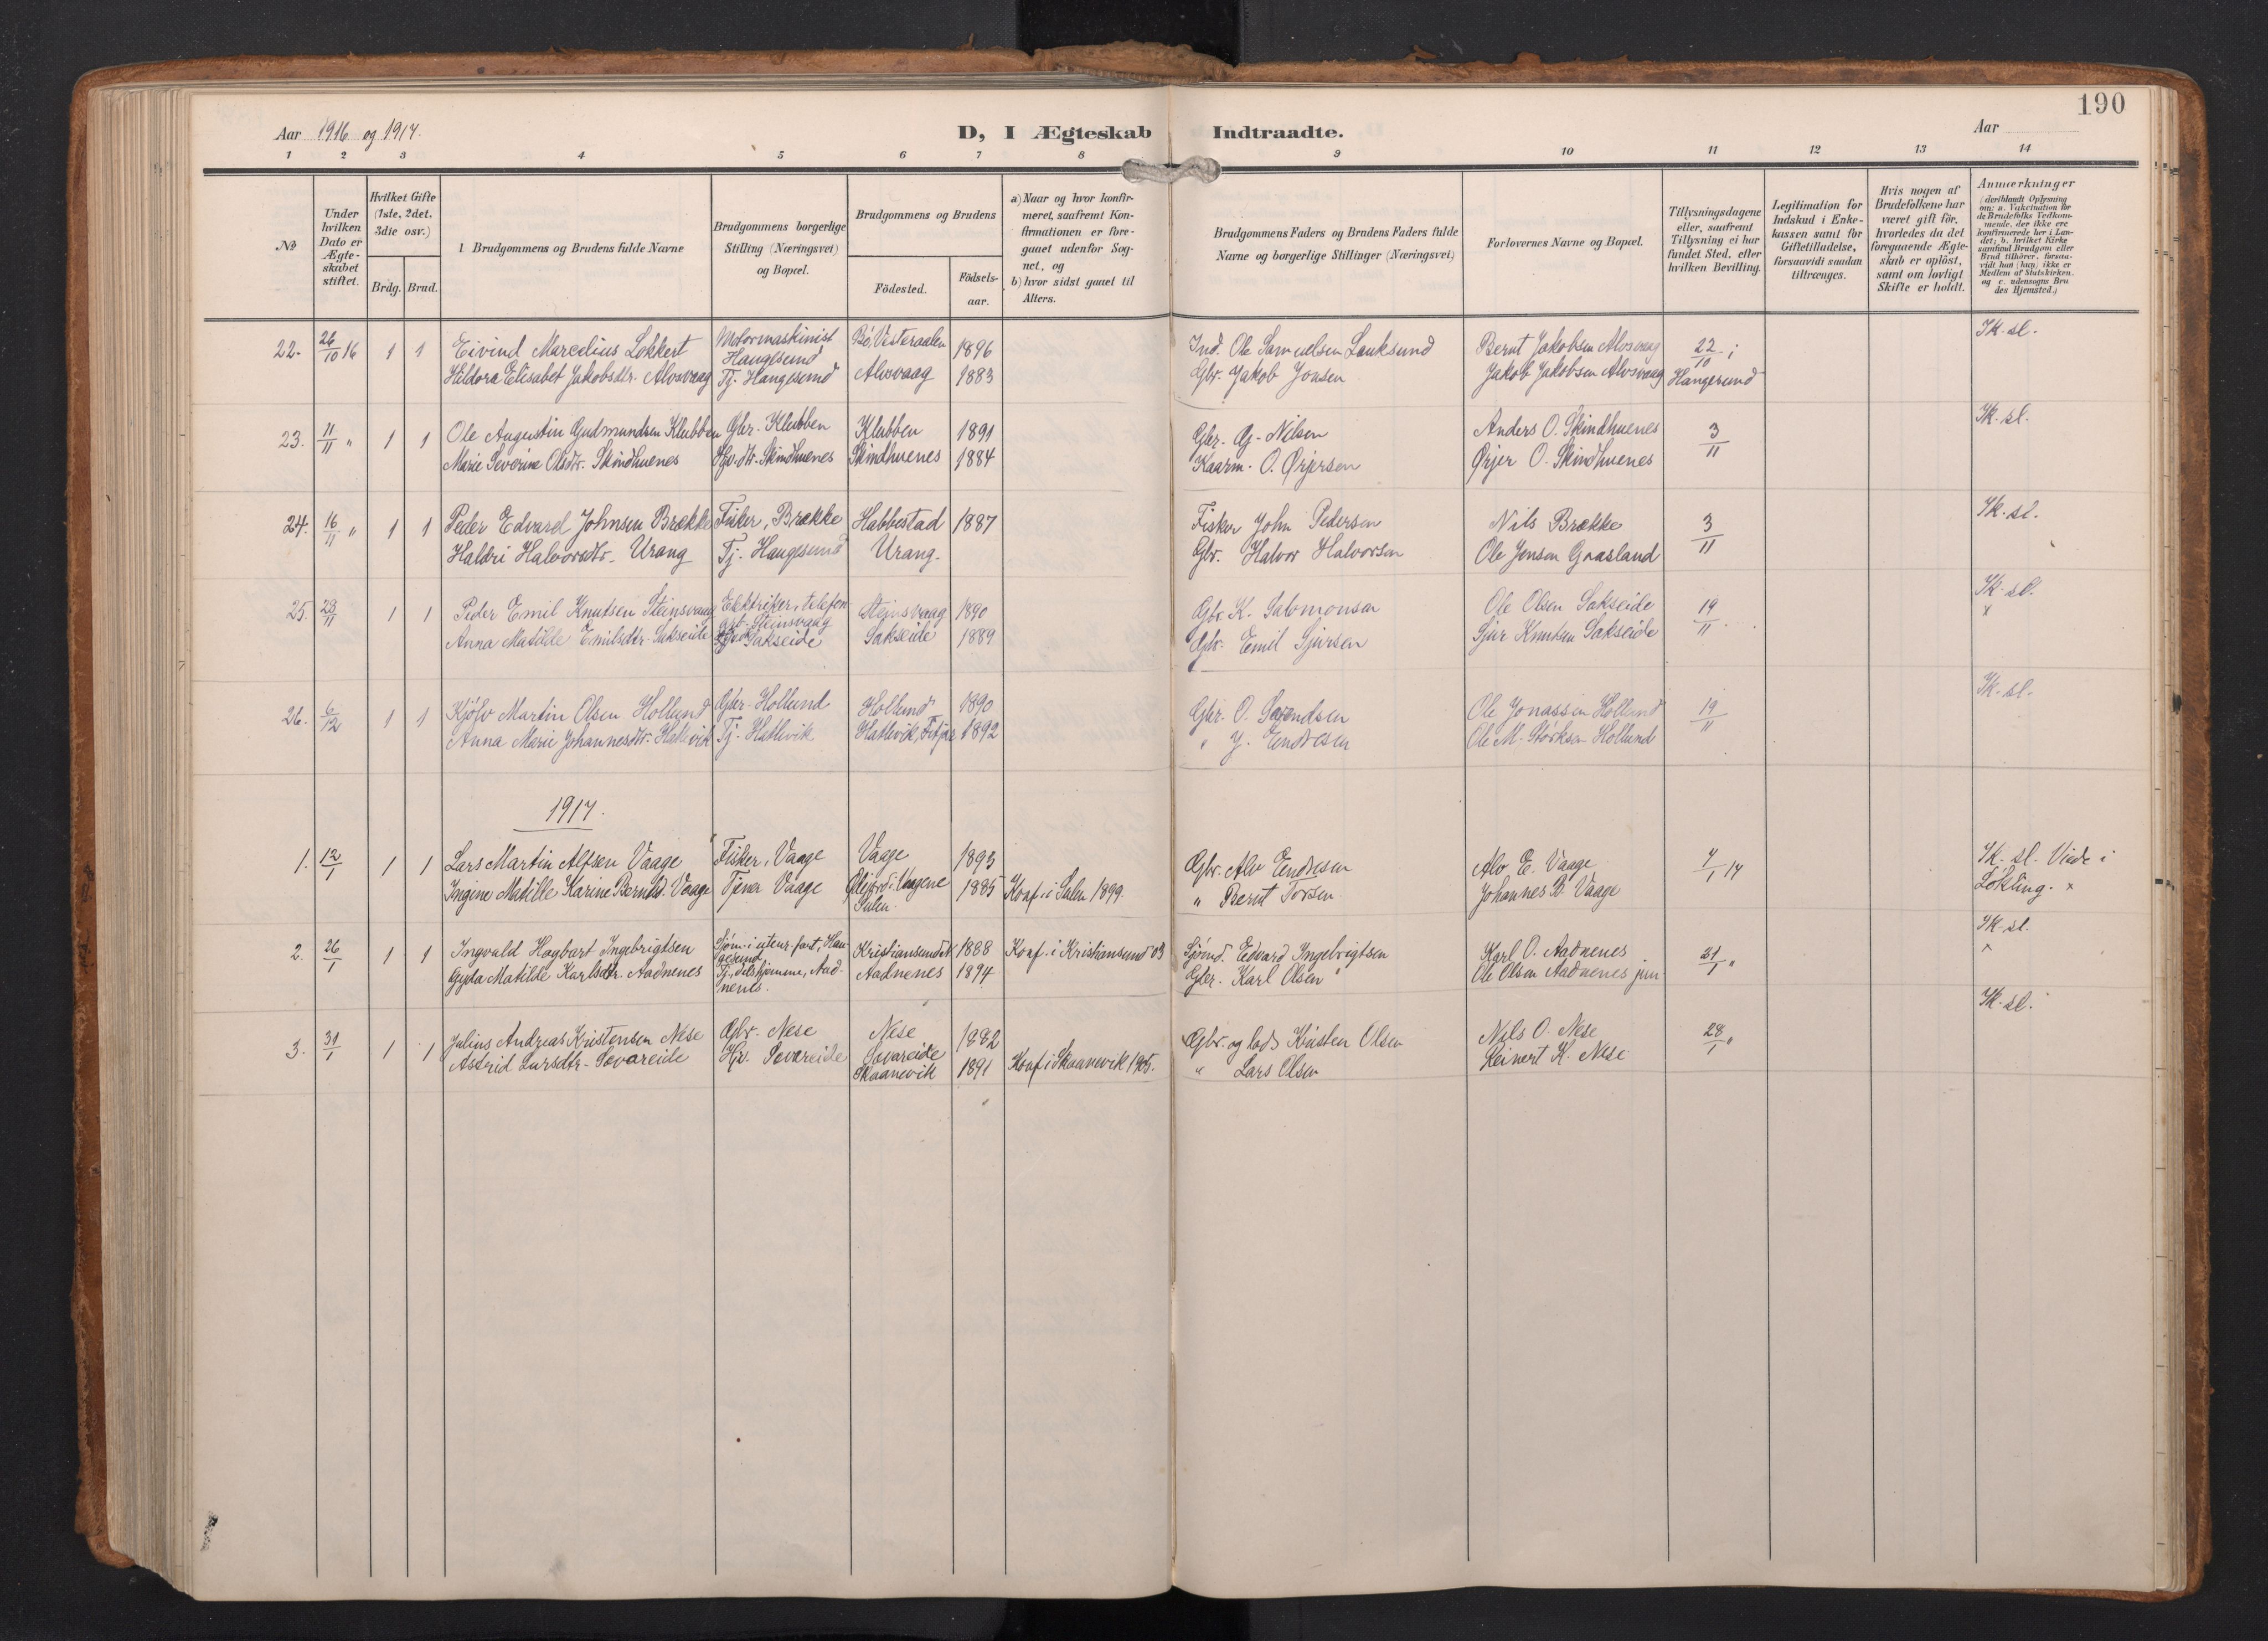 190
Aar 1916 og 1917.
D, I Ægteskab Indtraadte.
Aar
1 2 3 4 5 6 7 8 9 10 11 12 13 14
No
Under hvilken Dato er Ægteskabet stiftet.
Hvilket Gifte (1ste, 2det, 3die osv.)
Brdg. Brud.
Brudgommens og Brudens fulde Navne
Brudgommens borgerlige Stilling (Næringsvei) og Bopæl.
Brudgommens og Brudens
Födested.
Födselsaar.
a) Naar og hvor konfirmeret, saafremt Konfirmationen er foregaaet udenfor Sognet, og
b) hvor sidst gaaet til Alters.
Brudgommens Faders og Brudens Faders fulde Navne og borgerlige Stillinger (Næringsvei)
Forlovernes Navne og Bopæl.
Tillysningsdagene eller, saafremt Tillysning ei har fundet Sted, efter hvilken Bevilling.
Legitimation for Indskud i Enkekassen samt for Giftetilladelse, forsaavidt saadan tiltrænges.
Hvis nogen af Brudefolkene har været gift før, hvorledes da det foregaaende Ægteskab er oplöst, samt om lovligt Skifte er holdt.
Anmærkninger
(deriblandt Oplysning om: a. Vakcination for de Brudefolks Vedkommende, der ikke ere konfirmerede her i Landet; b. hvilket Kirkesamfund Brudgom eller Brud tilhörer, forsaavidt han (hun) ikke er Medlem af Statskirken. og c. udensogns Brudes Hjemsted.)
22. 26/10 16 1 1 Eivind Marcelius Lokkert Motormaskinist Haugesund Bö, Vesteraalen 1896 Ind. Ole Samuelsen Lauksund Bernt Jakobsen Alvsvaag 22/10 i Sk. sl.
Hildora Elisabet Jakobsdtr. Alvsvaag Tj. Haugesund Alvsvaag 1883 Gbr. Jakob Jonsen Jakob Jakobsen Alvsvaag Haugesund
23. 11/11 " 1 1 Ole Augustin Gudmundsen Klubben Gbr. Klubben Klubben 1891 Gbr. G. Nilsen Anders O. Skindhuenes 3/11 Sk. sl.
Marie Severine Olsdtr. Skindhuenes Skindhuenes Skindhuenes 1884 Kaarm. O. Ørjersen Ørjer O. Skindhuenes
24. 16/11 " 1 1 Peder Edvard Johnsen Brække Fisker, Brække Habbestad 1887 Fisker John Pedersen Nils Brække 3/11 Sk. sl.
Haldri Halvorsdtr. Urang Tj. Haugesund Urang. Gbr. Halvor Halvorsen Ole Jensen Graasland
25. 29/11 1 1 Peder Emil Knutsen Steinsvaag Elektriker, telefon Steinsvaag Steinsvaag 1890 Gbr. K. Salomonsen Ole Olsen Sakseide 19/11. Sk. sl. x
Anna Matilde Emilsdtr. Sakseide Sakseide Sakseide 1889 Gbr. Emil Sjursen Sjur Knutsen Sakseide
26. 6/12 1 1 Kjölv Martin Olsen Hollund Gbr. Hollund Hollund 1890 Gbr. O. Ole Jonassen Hollund 19/11 Sk. sl.
Anna Marie Johannesdtr. Hatlevik Tj. Hatlevik Hatlevik, Fitjar 1892 " J. Endresen Ole M. Hollund
1917.
1. 12/1 1 1 Lars Martin Alfsen Vaage Fisker, Vaage Vaage 1893 Gbr. Alv Endresen Alv E. Vaage 7/1 17 Sk. sl. Viede i
Ingine Matilde Karine Berntsd. Vaage Tjener Vaage 1885 Konf. i Sulen 1899. " Bernt Torsen Johannes B. Vaage Lökling. x
Sulen
2. 26/1 1 1 Ingvald Hagbart Ingebrigtsen Sjöm. i utenr. fart, Haugesund Kristiansund N 1888 Konf. i Kristiansund 03 Sjömd. Edvard Ingebrigtsen Karl O. Aadnenes 21/1 " Sk. sl. x
Gyda Matilde Karlsdtr. Aadnenes Aadnenes. Aadnenes 1894 Gbr. Karl Olsen " Ole Olsen Aadnenes jun
3. 31/1 1 1 Julius Andreas Kristensen Nese Gbr. Nese Nese 1882 Gbr. og lods Kristen Olsen Nils O. Nese 28/1 " Sk. sl.
Astrid Larsdtr. Sævareide Hv. Sævareide Sævareide Skaanevik 1891 Konf. i Skaanevik 1905. " Lars Olsen Reinert K. Nese